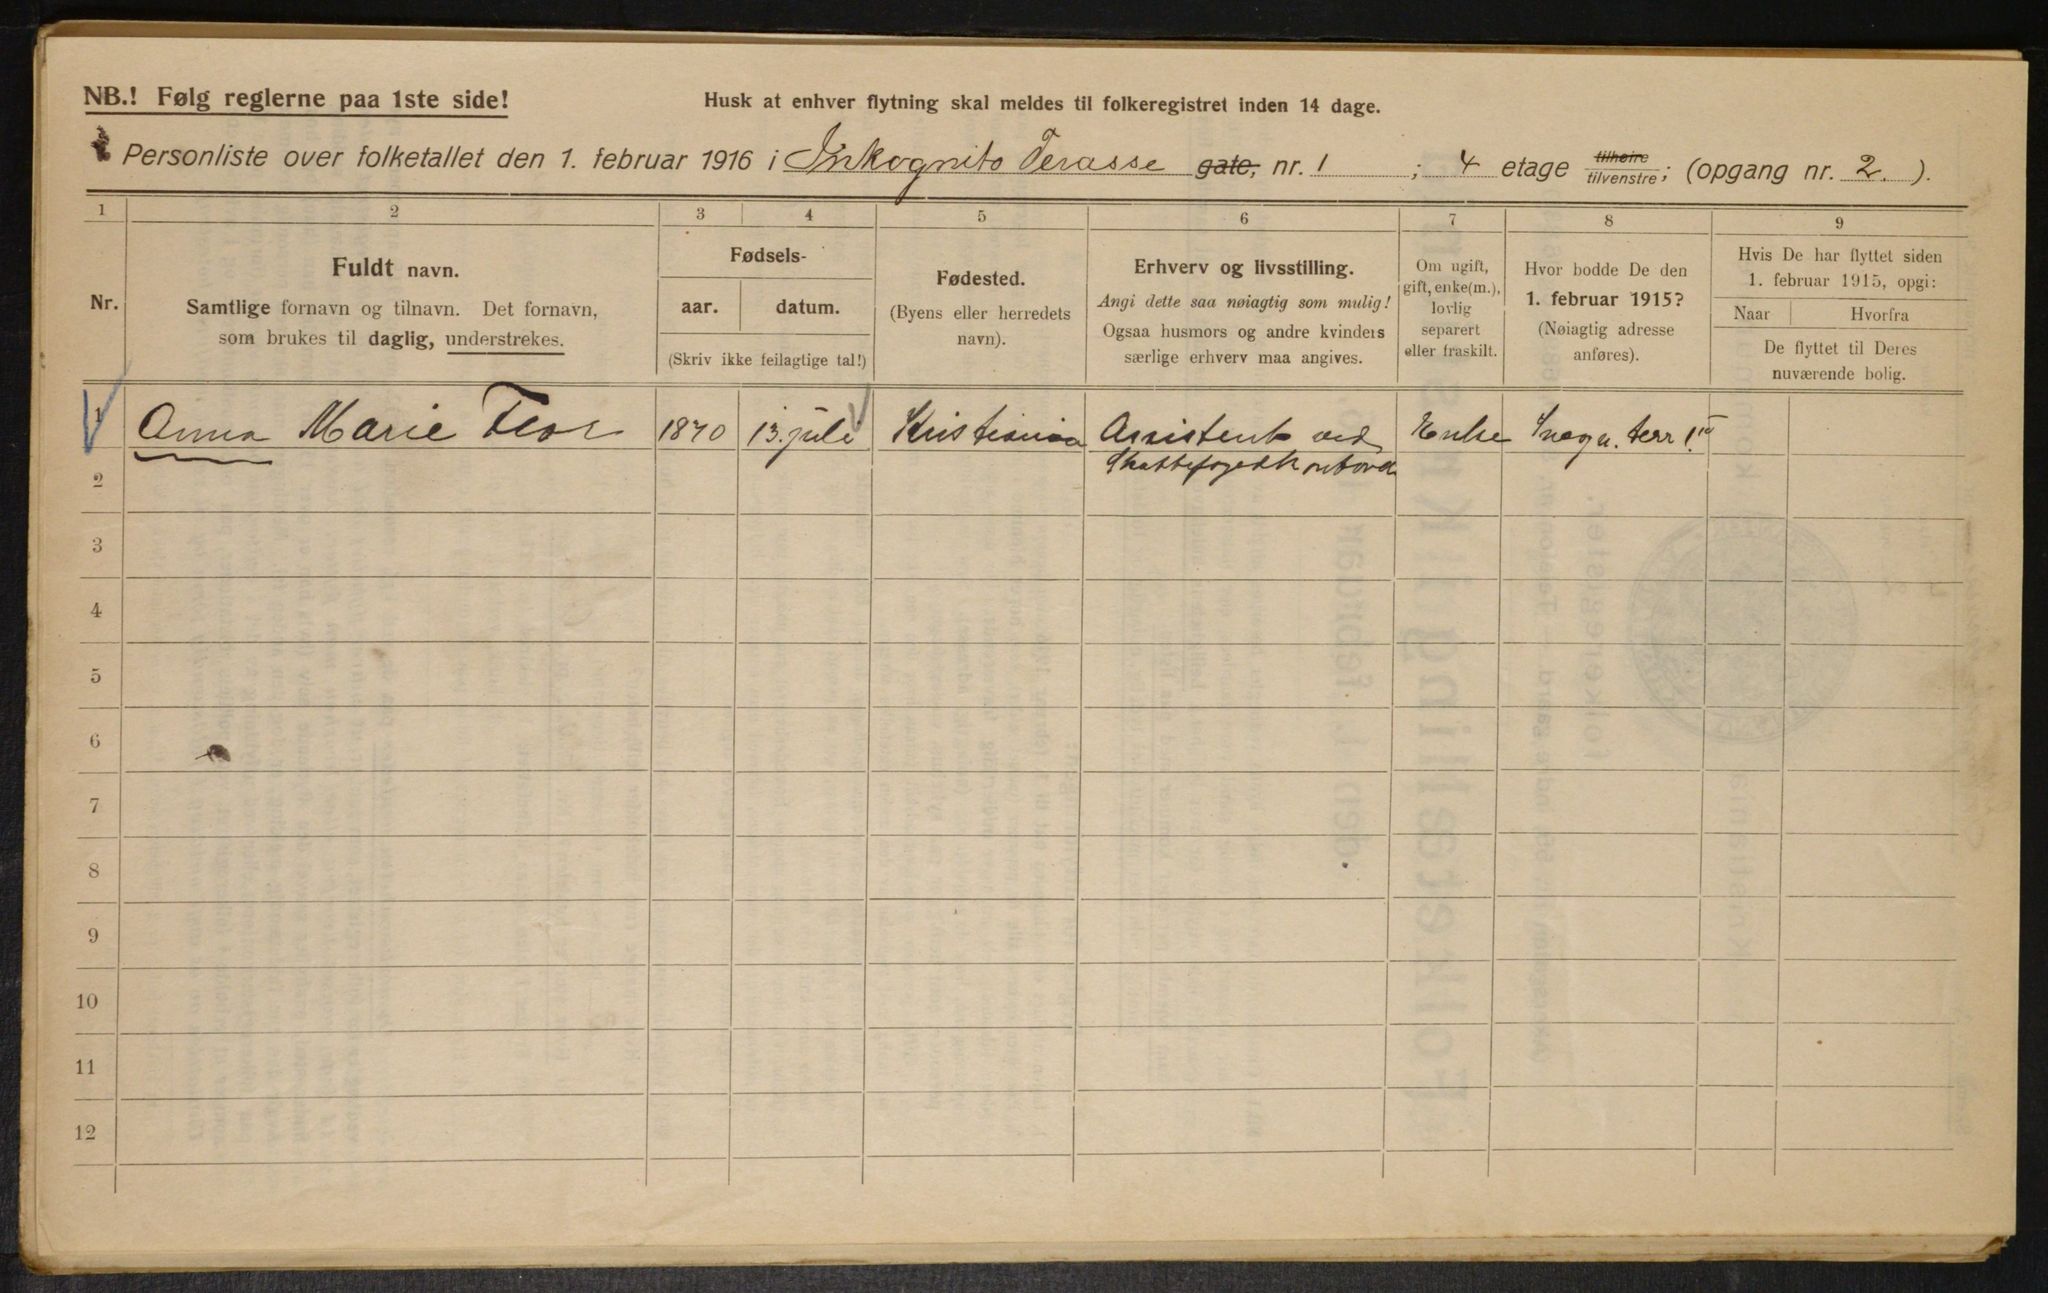 NB.! Følg reglerne paa 1ste side!
Husk at enhver flytning skal meldes til folkeregistret inden 14 dage.
Personliste over folketallet den 1. februar 1916 i Inkognito Terasse gate, nr. 1 ; 4 etage tilhøire tilvenstre; (opgang nr. 2. ).
1 2 3 4 5 6 7 8 9
Nr.
Fuldt navn.
Samtlige fornavn og tilnavn. Det fornavn,
som brukes til daglig, understrekes.
Fødsels-
aar. datum.
(Skriv ikke feilagtige tal!)
Fødested.
(Byens eller herredets
navn).
Erhverv og livsstilling.
Angi dette saa nøiagtig som mulig!
Ogsaa husmors og andre kvinders
særlige erhverv maa angives.
Om ugift,
gift, enke(m.),
lovlig
separert
eller fraskilt.
Hvor bodde De den
1. februar 1915?
(Nøiagtig adresse
anføres).
Hvis De har flyttet siden
1. februar 1915, opgi:
Naar Hvorfra
De flyttet til Deres
nuværende bolig.
1 Anna Marie Flor 1870 13. juli Kristiania Assistent ved Enke Incogn. terr 1
Skattefogedkontoret
2
3
4
5
6
7
8
9
10
11
12